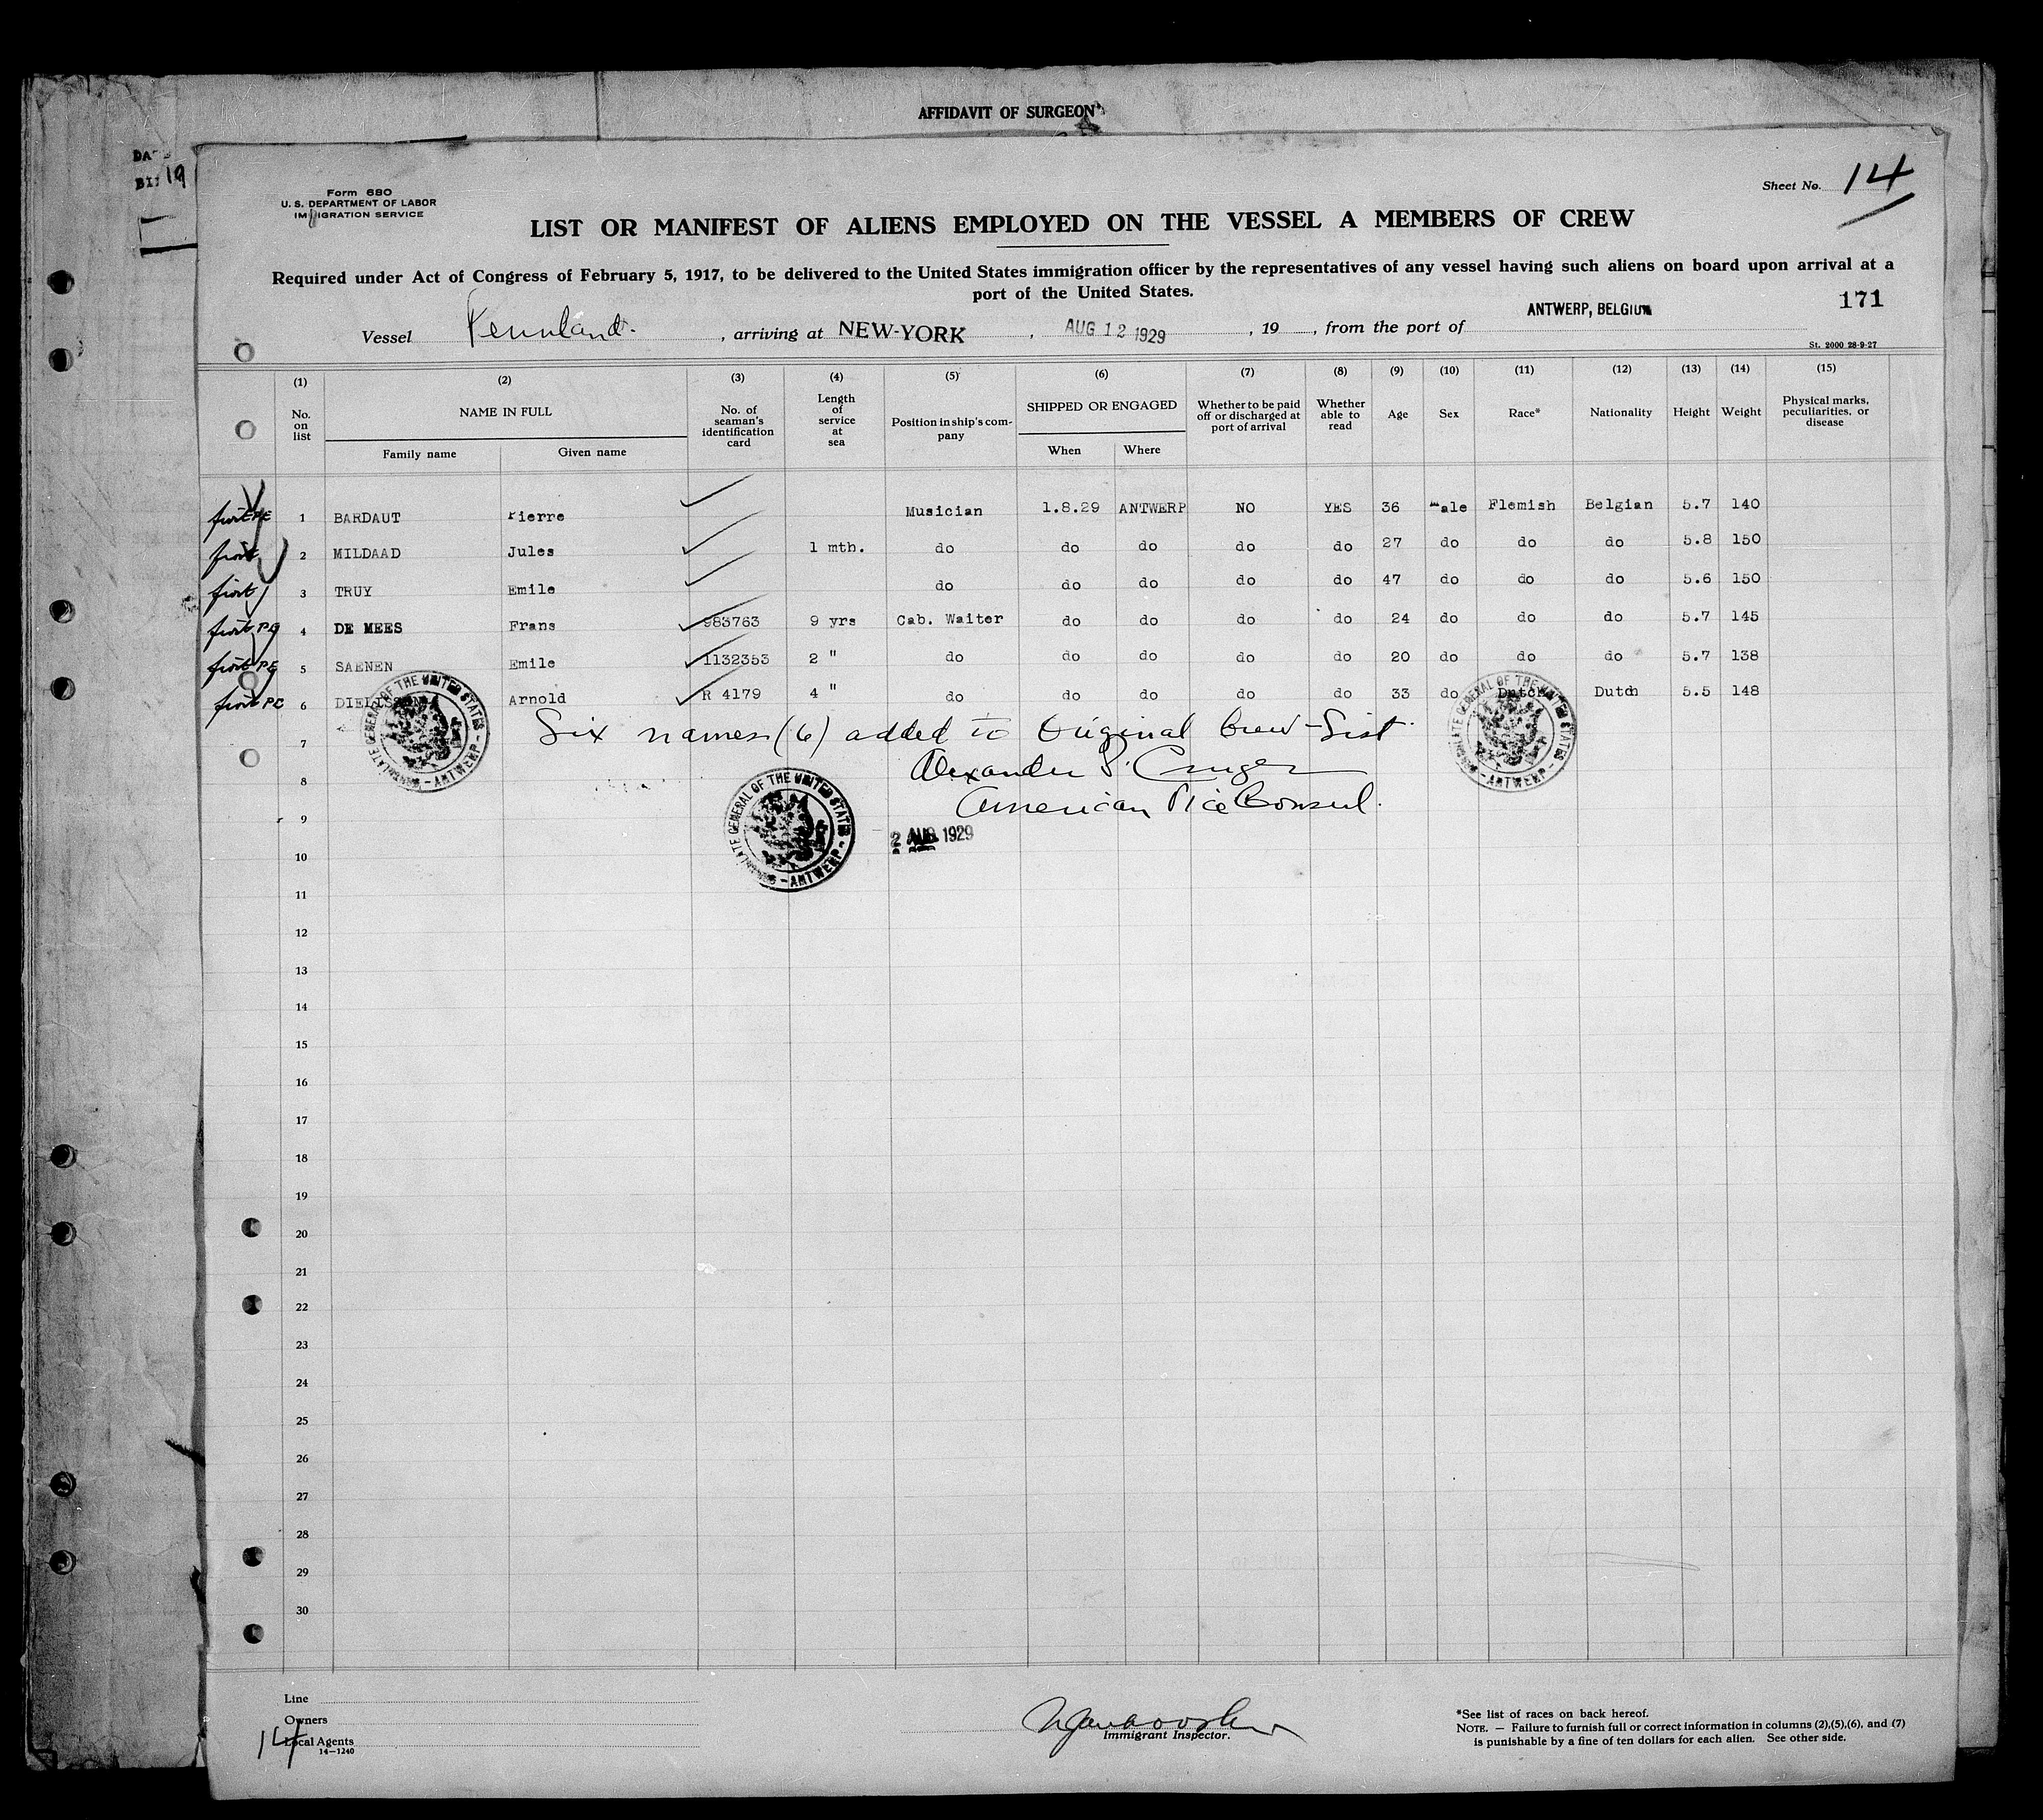 AFFIDAVIT OF SURGEON
19
Form 680
U. S. DEPARTMENT OF LABOR
IMMIGRATION SERVICE
Sheet No. 14
LIST OR MANIFEST OF ALIENS EMPLOYED ON THE VESSEL A MEMBERS OF CREW
Required under Act of Congress of February 5, 1917, to be delivered to the United States immigration officer by the representatives of any vessel having such aliens on board upon arrival at a
port of the United States.
171
Vessel Pennland. , arriving at NEW-YORK , AUG 12 1929 , 19 , from the port of ANTWERP, BELGIUM
St. 2000 28-9-27
(1) (2) (3) (4) (5) (6) (7) (8) (9) (10) (11) (12) (13) (14) (15)
No. on list NAME IN FULL Family name Given name No. of seaman's identification card Length of service at sea Position in ship's company SHIPPED OR ENGAGED When Where Whether to be paid off or discharged at port of arrival Whether able to read Age Sex Race* Nationality Height Weight Physical marks, peculiarities, or disease
1 BARDAUT Pierre Musician 1.8.29 ANTWERP NO YES 36 Male Flemish Belgian 5.7 140
first 2 MILDAAD Jules 1 mth. do do do do do 27 do do do 5.8 150
first 3 TRUY Emile do do do do do 47 do do do 5.6 150
first 4 DE MEES Frans 983763 9 yrs Cab. Waiter do do do do 24 do do do 5.7 145
first 5 SAENEN Emile 1132353 2 " do do do do do 20 do do do 5.7 138
first 6 Arnold R 4179 4 " do do do do do 33 do Dutch Dutch 5.5 148
Six names (6) added to Original Crew-List.
7
Alexander P. Cruger
8
American Vice Consul.
9
CONSULATE GENERAL OF THE UNITED STATES - ANTWERP -
CONSULATE GENERAL OF THE UNITED STATES - ANTWERP -
CONSULATE GENERAL OF THE UNITED STATES - ANTWERP -
2 AUG 1929
10
11
12
13
14
15
16
17
18
19
20
21
22
23
24
25
26
27
28
29
30
Line
Owners
Local Agents
14
14-1240
Immigrant Inspector.
*See list of races on back hereof.
NOTE. — Failure to furnish full or correct information in columns (2),(5),(6), and (7)
is punishable by a fine of ten dollars for each alien. See other side.